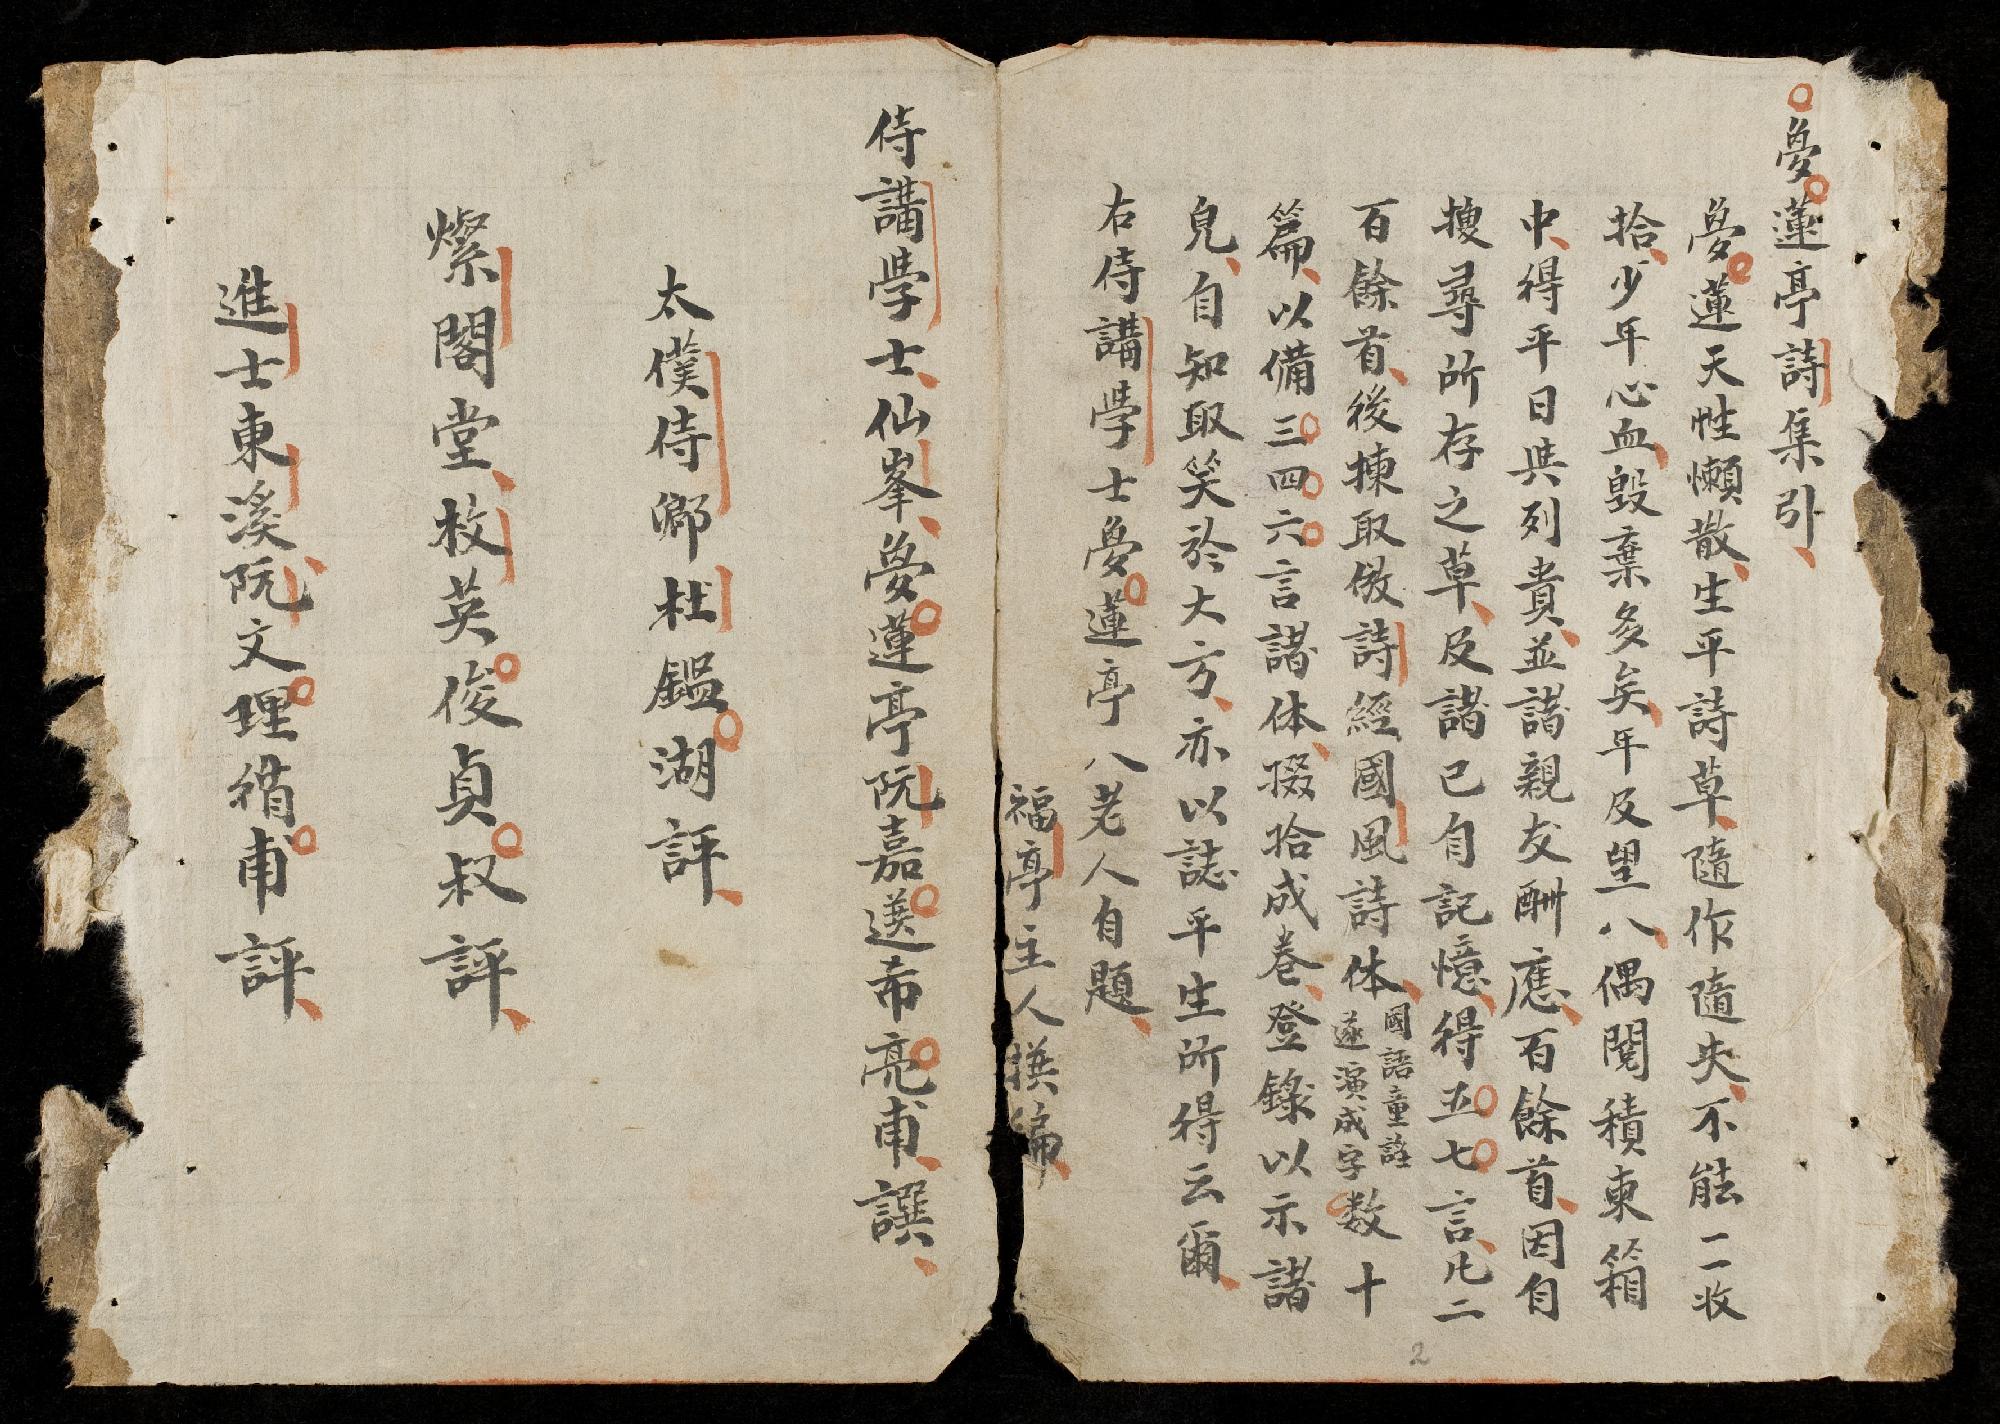 夢蓮亭詩集引
夢蓮天性懶散生平詩草隨作隨失不能一一收
拾少年心血毀棄多矣年及望八偶閱積柬箱
中得平日與列貴並諸親友酬應百餘首因自
搜尋所存之草及諸已自記憶得五七言凡二
百餘首後揀取倣詩經國風詩体國語童謠遂演成字数十
篇以備三四六言諸体掇拾成卷登錄以示諸
兒自知取笑於大方亦以誌平生所得云爾
右侍講學士夢蓮亭八老人自題
福亭主人撰編
侍講學士仙峯夢蓮亭阮嘉選希亮甫譔
太僕侍卿杜鑑湖評
燦閣堂枚英俊貞叔評
進士東溪阮文理循甫評
2